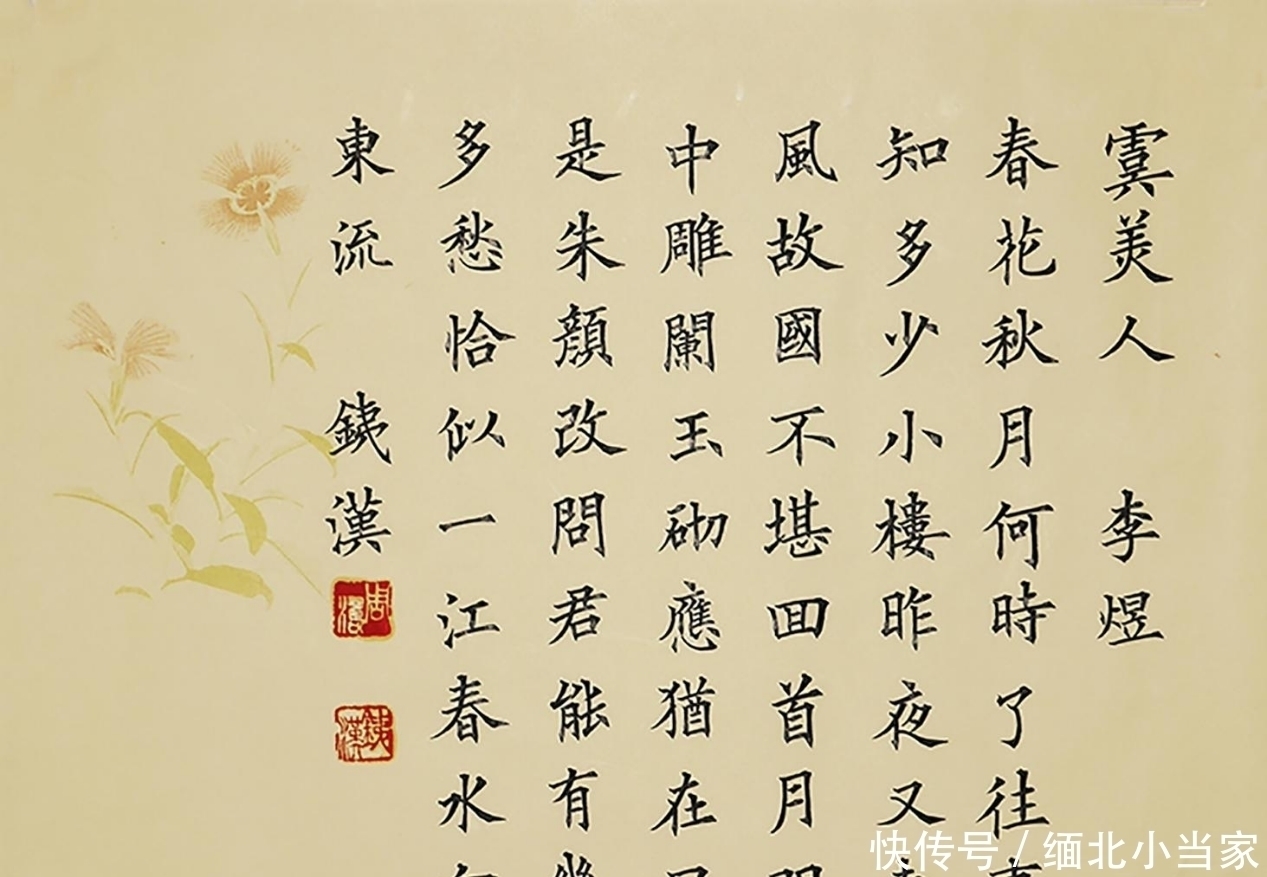 虞美人 李煜
春花秋月何時了往
知多少小樓昨夜又
風故國不堪回首月
中雕闌玉砌應猶在
是朱顏改問君能有
多愁恰似一江春水
東流 銕漢
銕漢
快传号/缅北小当家